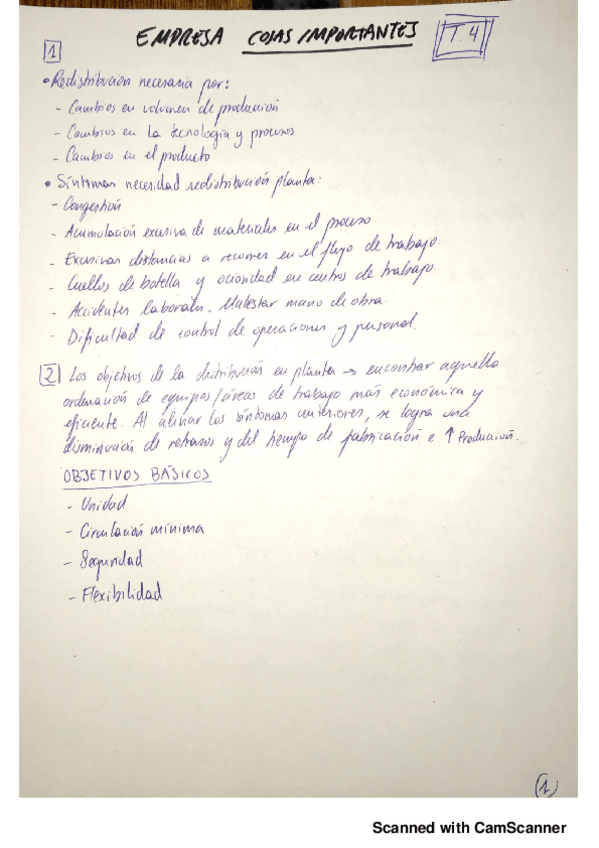 EMPRESA COSAS IMPORTANTES T.4
1
• Redistribución necesaria por:
- Cambios en volumen de producción
- Cambios en la tecnología y procesos
- Cambios en el producto
• Síntomas necesidad redistribución planta:
- Congestión
- Acumulación excesiva de materiales en el proceso
- Excesivas distancias a recorrer en el flujo de trabajo.
- Cuellos de botella y ociosidad en centros de trabajo.
- Accidentes laborales. Malestar mano de obra.
- Dificultad de control de operaciones y personal.
2 Los objetivos de la distribución en planta → encontrar aquella
ordenación de equipos/áreas de trabajo más económica y
eficiente. Al aliviar los síntomas anteriores, se logra una
disminución de retrasos y del tiempo de fabricación e ↑ Producción.
OBJETIVOS BÁSICOS
- Unidad
- Circulación mínima
- Seguridad
- Flexibilidad
(1)
Scanned with CamScanner